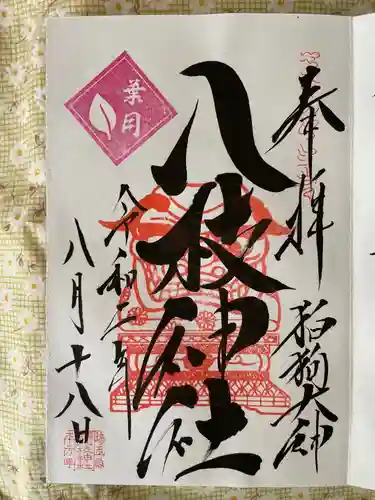 奉拝
狛狗大神
八枝神社
葉月
令和 年
八月十八日